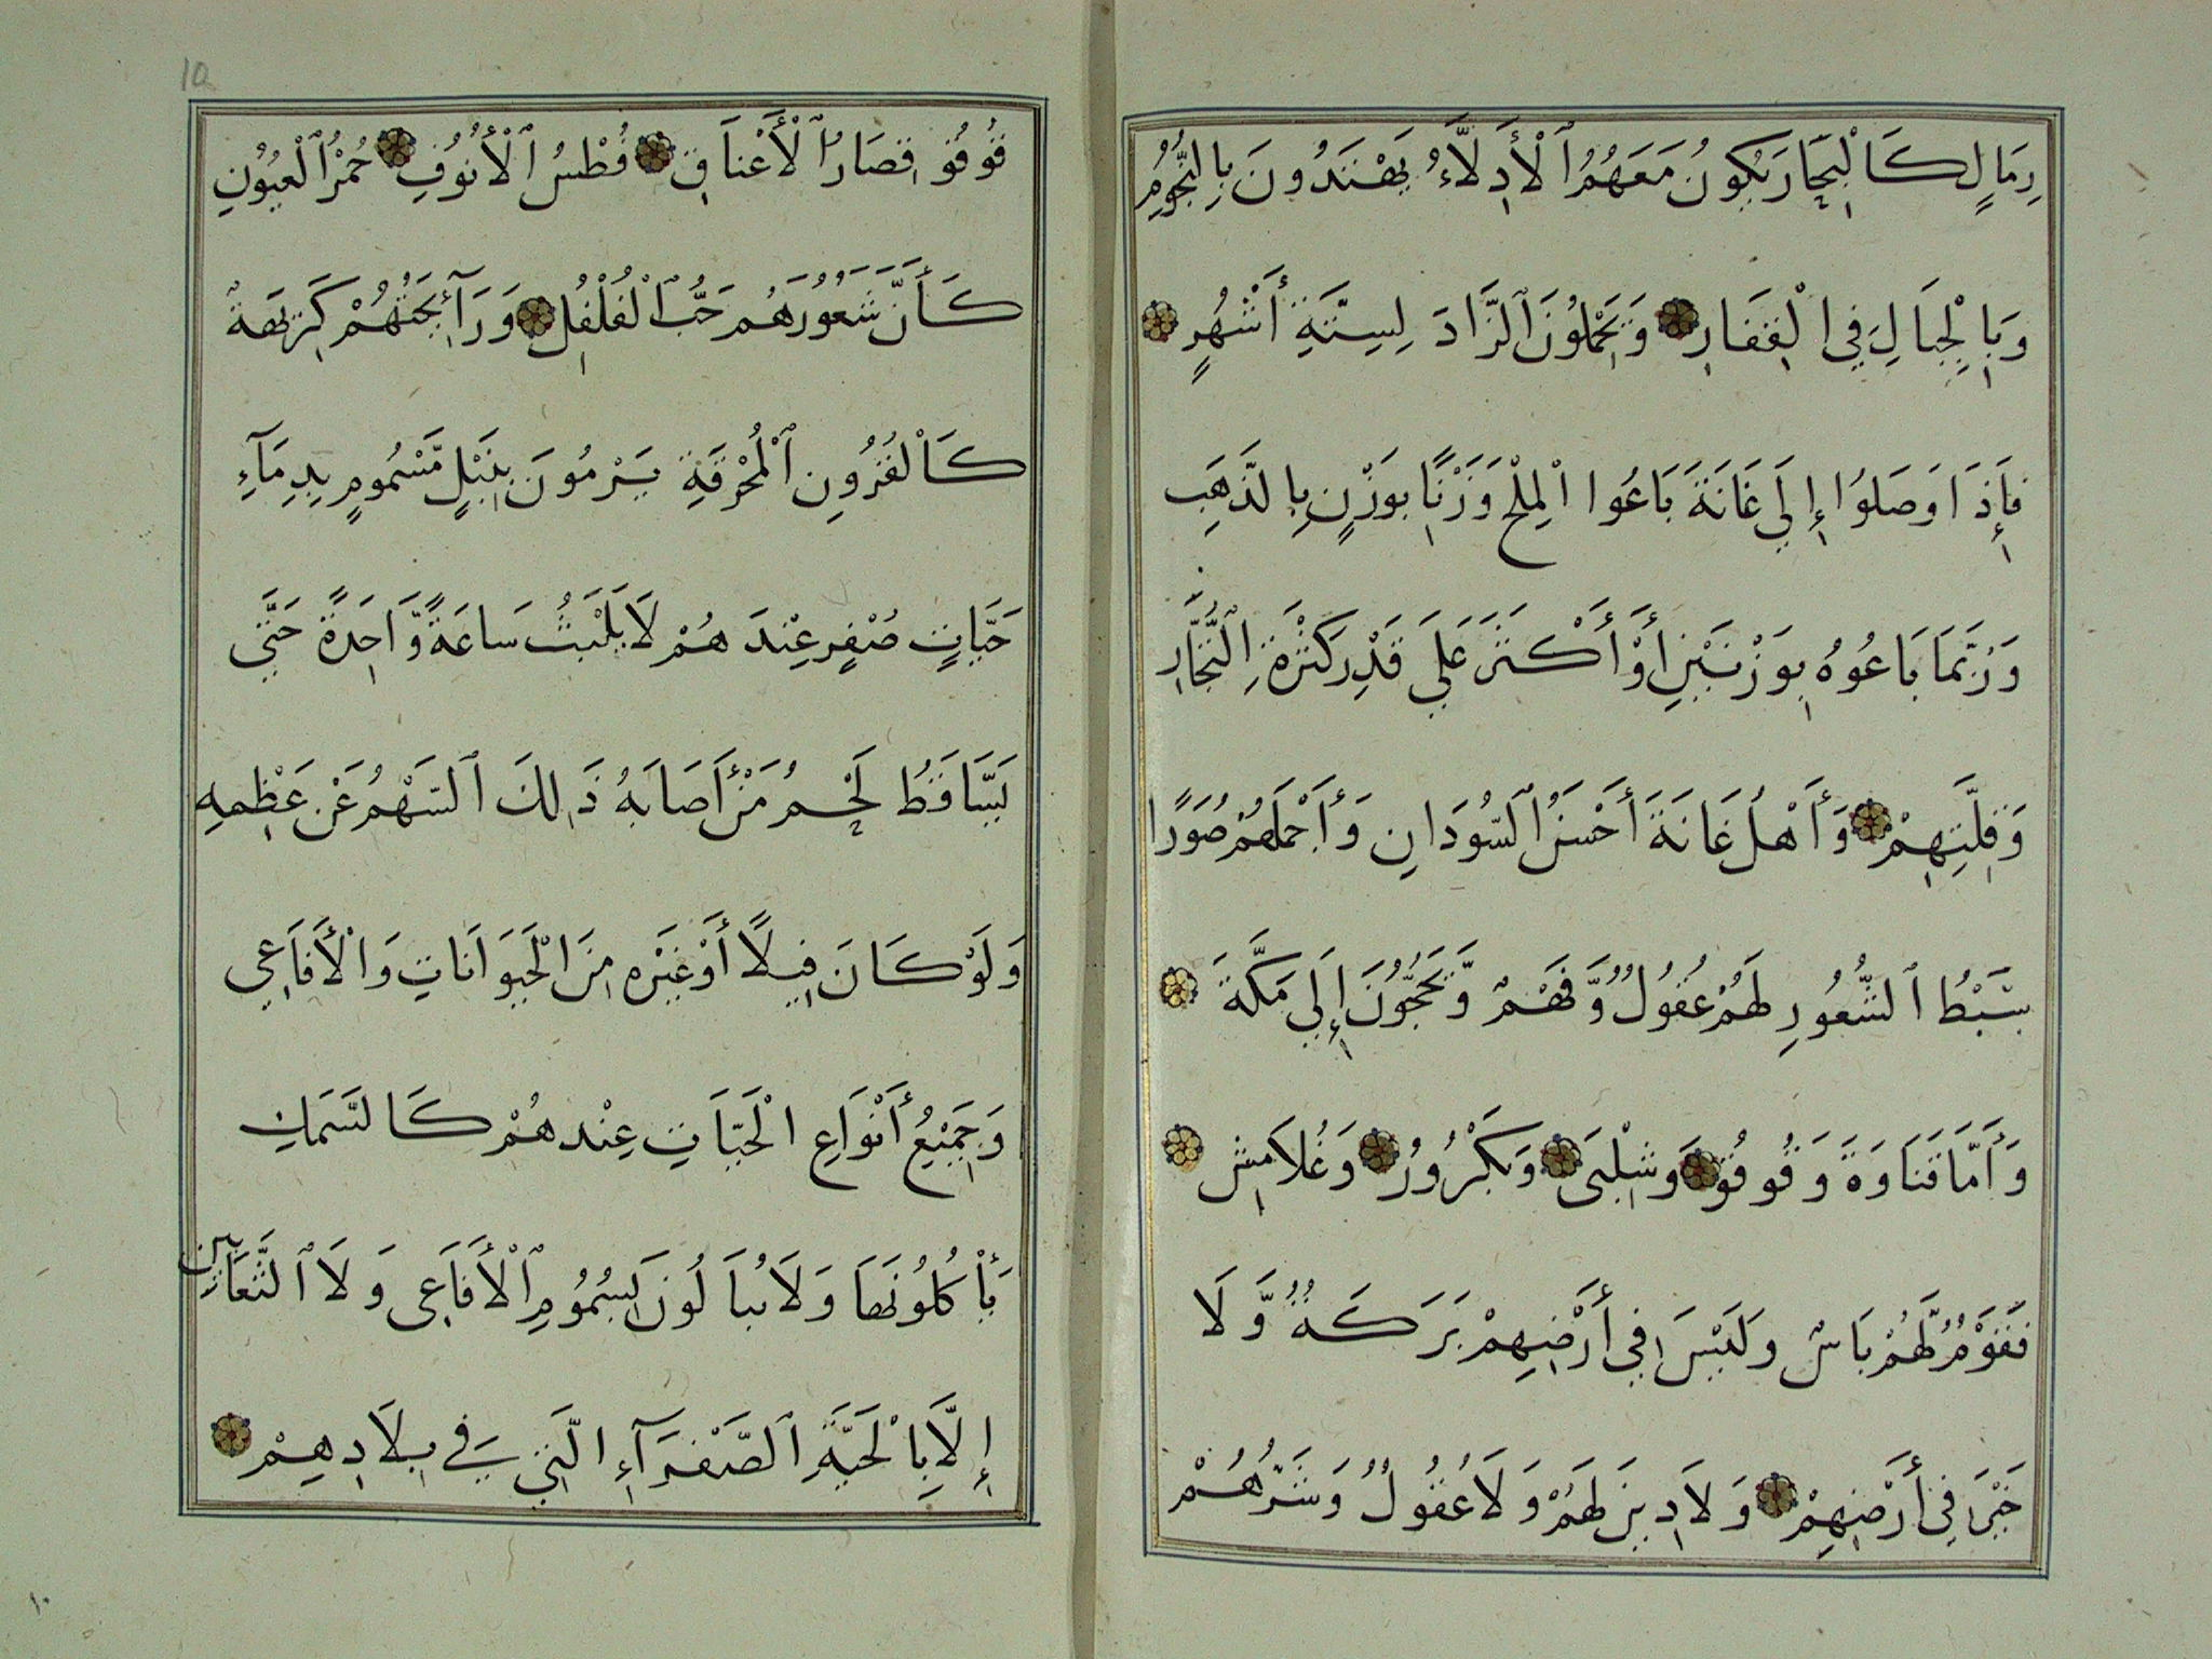 رِمَالٍ كَالْبِحَارِ يَكُونُ مَعَهُمُ ٱلْأَدِلَّاءُ يَهْتَدُونَ بِالنُّجُومِ
وَبِالْجِبَالِ فِي الْقِفَارِ وَيَحْمِلُونَ ٱلزَّادَ لِسِتَّةِ أَشْهُرٍ
فَإِذَا وَصَلُوا إِلَى غَانَةَ بَاعُوا الْمِلْحَ وَزْنًا بِوَزْنٍ بِالذَّهَبِ
وَرُبَّمَا بَاعُوهُ بِوَزْنَيْنِ أَوْ أَكْثَرَ عَلَى قَدْرِ كَثْرَةِ التُّجَّارِ
وَقِلَّتِهِمْ وَأَهْلُ غَانَةَ أَحْسَنُ ٱلسُّودَانِ وَأَجْمَلُهُمْ صُوَرًا
سَبْطُ ٱلشُّعُورِ لَهُمْ عُقُولٌ وَّفَهْمٌ وَّيَحُجُّونَ إِلَى مَكَّةَ
وَأَمَّا قَنَاوَةَ وَقُوقُو وَشِلْبَى وَبَكْرُورُ وَغُلَامِش
فَقَوْمٌ لَّهُمْ بَاسٌ وَلَيْسَ فِي أَرْضِهِمْ بَرَكَةٌ وَّلَا
خَيْرَ فِي أَرْضِهِمْ وَلَا دِينَ لَهُمْ وَلَا عُقُولٌ وَشَرُّهُمْ
قُوقُو قِصَارُ ٱلْأَعْنَاقِ فُطْسُ ٱلْأُنُوفِ حُمْرُ ٱلْعُيُونِ
كَأَنَّ شُعُورَهُمْ حَبُّ ٱلْفُلْفُلِ وَرَآئِحَتُهُمْ كَرِيهَةٌ
كَالْقُرُونِ ٱلْمُحْرَقَةِ يَرْمُونَ بِنَبْلٍ مَّسْمُومٍ بِدِمَآءِ
حَيَّاتٍ صُفْرٍ عِنْدَهُمْ لَا يَلْبَثُ سَاعَةً وَّاحِدَةً حَتَّى
يَتَسَاقَطُ لَحْمُ مَنْ أَصَابَهُ ذَلِكَ ٱلسَّهْمُ عَنْ عَظْمِهِ
وَلَوْ كَانَ فِيلًا أَوْ غَيْرَهُ مِنَ الْحَيَوَانَاتِ وَالْأَفَاعِي
وَجَمِيعُ أَنْوَاعِ الْحَيَّاتِ عِنْدهُمْ كَالسَّمَكِ
يَأْكُلُونَهَا وَلَا يُبَالُونَ بِسُمُومِ ٱلْأَفَاعِي وَلَا ٱلثَّعَابِينِ
إِلَّا بِالْحَيَّةِ ٱلصَّفْرَآءِ الَّتِي فِي بِلَادِهِمْ
10
١٠